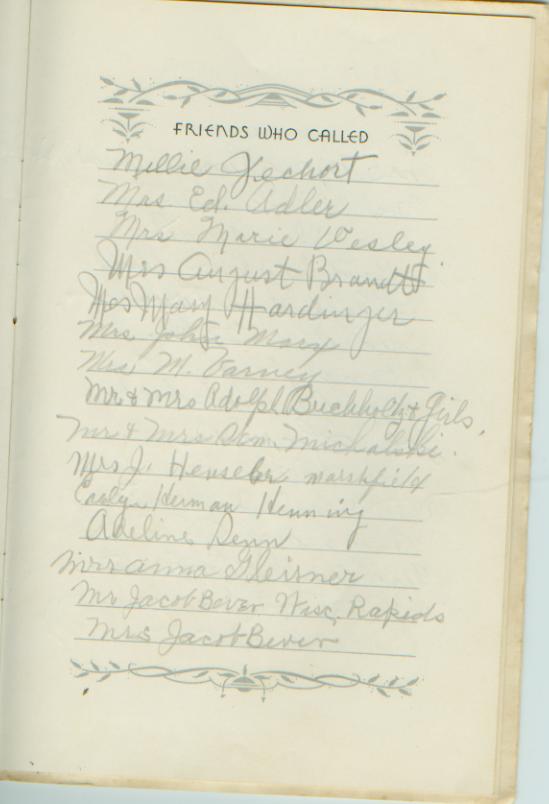 FRIENDS WHO CALLED
Millie Jechort
Mrs. Ed. Adler
Mrs Marie Wesley
Mrs August Brandt
Mrs Mary Hardinger
Mrs John Marx
Mrs M. Varney
Mr & Mrs Adolpl Buckholtz & Girls.
Mr & Mrs Dom. Michalski.
Mrs J. Henseler Marshfield
Herman Henning
Adeline Denn
Mrs Anna Gleisner
Mr Jacob Bever Wisc. Rapids
Mrs Jacob Bever